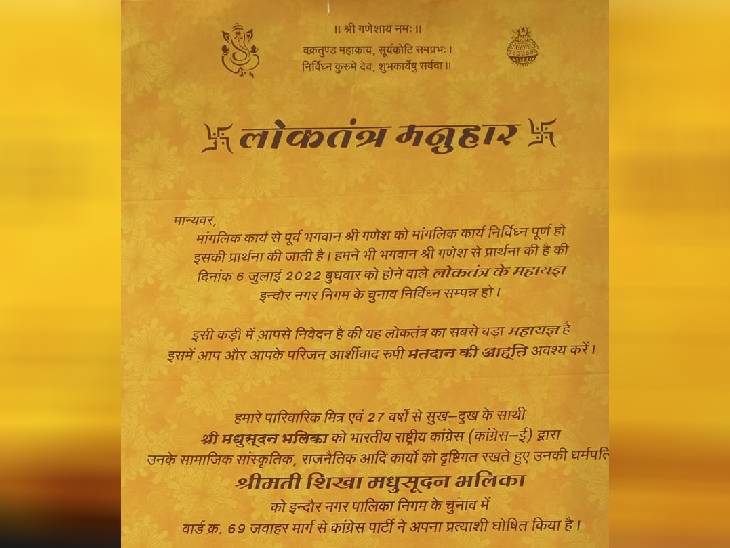 ॥ श्री गणेशाय नमः ॥
वक्रतुण्ड महाकाय, सूर्यकोटि समप्रभः।
निर्विघ्न कुरुमे देव, शुभकार्येषु सर्वदा॥
लोकतंत्र मनुहार
मान्यवर,
मांगलिक कार्य से पूर्व भगवान श्री गणेश को मांगलिक कार्य निर्विघ्न पूर्ण हो
इसकी प्रार्थना की जाती है। हमने भी भगवान श्री गणेश से प्रार्थना की है की
दिनांक 6 जुलाई 2022 बुधवार को होने वाले लोकतंत्र के महायज्ञ
इन्दौर नगर निगम के चुनाव निर्विघ्न सम्पन्न हो।
इसी कड़ी में आपसे निवेदन है की यह लोकतंत्र का सबसे बड़ा महायज्ञ है
इसमें आप और आपके परिजन आर्शीवाद रुपी मतदान की आहूति अवश्य करें।
हमारे पारिवारिक मित्र एवं 27 वर्षो से सुख–दुख के साथी
श्री मधुसूदन भलिका को भारतीय राष्ट्रीय कांग्रेस (कांग्रेस–ई) द्वारा
उनके सामाजिक सांस्कृतिक, राजनैतिक आदि कार्यो को दृष्टिगत रखते हुए उनकी धर्मपति
श्रीमती शिखा मधुसूदन भलिका
को इन्दौर नगर पालिका निगम के चुनाव में
वार्ड क्र. 69 जवाहर मार्ग से कांग्रेस पार्टी ने अपना प्रत्याशी घोषित किया है।